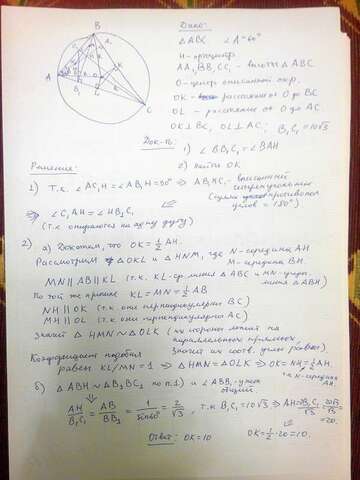 B
A
C
Дано:
△ABC ∠A=60°
H - ортоцентр
AA₁, BB₁, CC₁ - высоты △ABC
O - центр описанной окр.
OK - расстояние от O до BC
OL - расстояние от O до AC
OK⊥BC, OL⊥AC; B₁C₁=10√3
Док-ть:
1) ∠BB₁C₁ = ∠BAH
2) Найти OK
Решение:
1) Т.к. ∠AC₁H = ∠AB₁H = 90° ⇒ AB₁HC₁ - вписанный четырехугольник
(сумма противопол. углов = 180°)
⇒ ∠C₁AH = ∠HB₁C₁
(т.к. опираются на одну дугу)
2) а) Докажем, что OK = ½AH.
Рассмотрим △OKL и △HNM, где N - середина AH
M - середина BH.
MN || AB || KL (т.к. KL - ср. линия △ABC и MN - средн. линия △ABH)
По той же причине KL = MN = ½AB
NH || OK (т.к. они перпендикулярны BC)
MH || OL (т.к. они перпендикулярны AC)
Значит △HMN ~ △OLK (их стороны лежат на параллельных прямых
значит их соотв. углы равны).
Коэффициент подобия
равен KL/MN = 1 ⇒ △HMN = △OLK ⇒ OK = NH = ½AH.
т.к. N - середина AH.
б) △ABH ~ △B₁BC₁ по п.1) и ∠ABB₁ - угол общий
⇓
AH/B₁C₁ = AB/BB₁ = 1/sin60° = 2/√3, т.к. B₁C₁ = 10√3 ⇒ AH = 2B₁C₁/√3 = 20√3/√3 = 20.
OK = ½·20 = 10.
Ответ: OK = 10